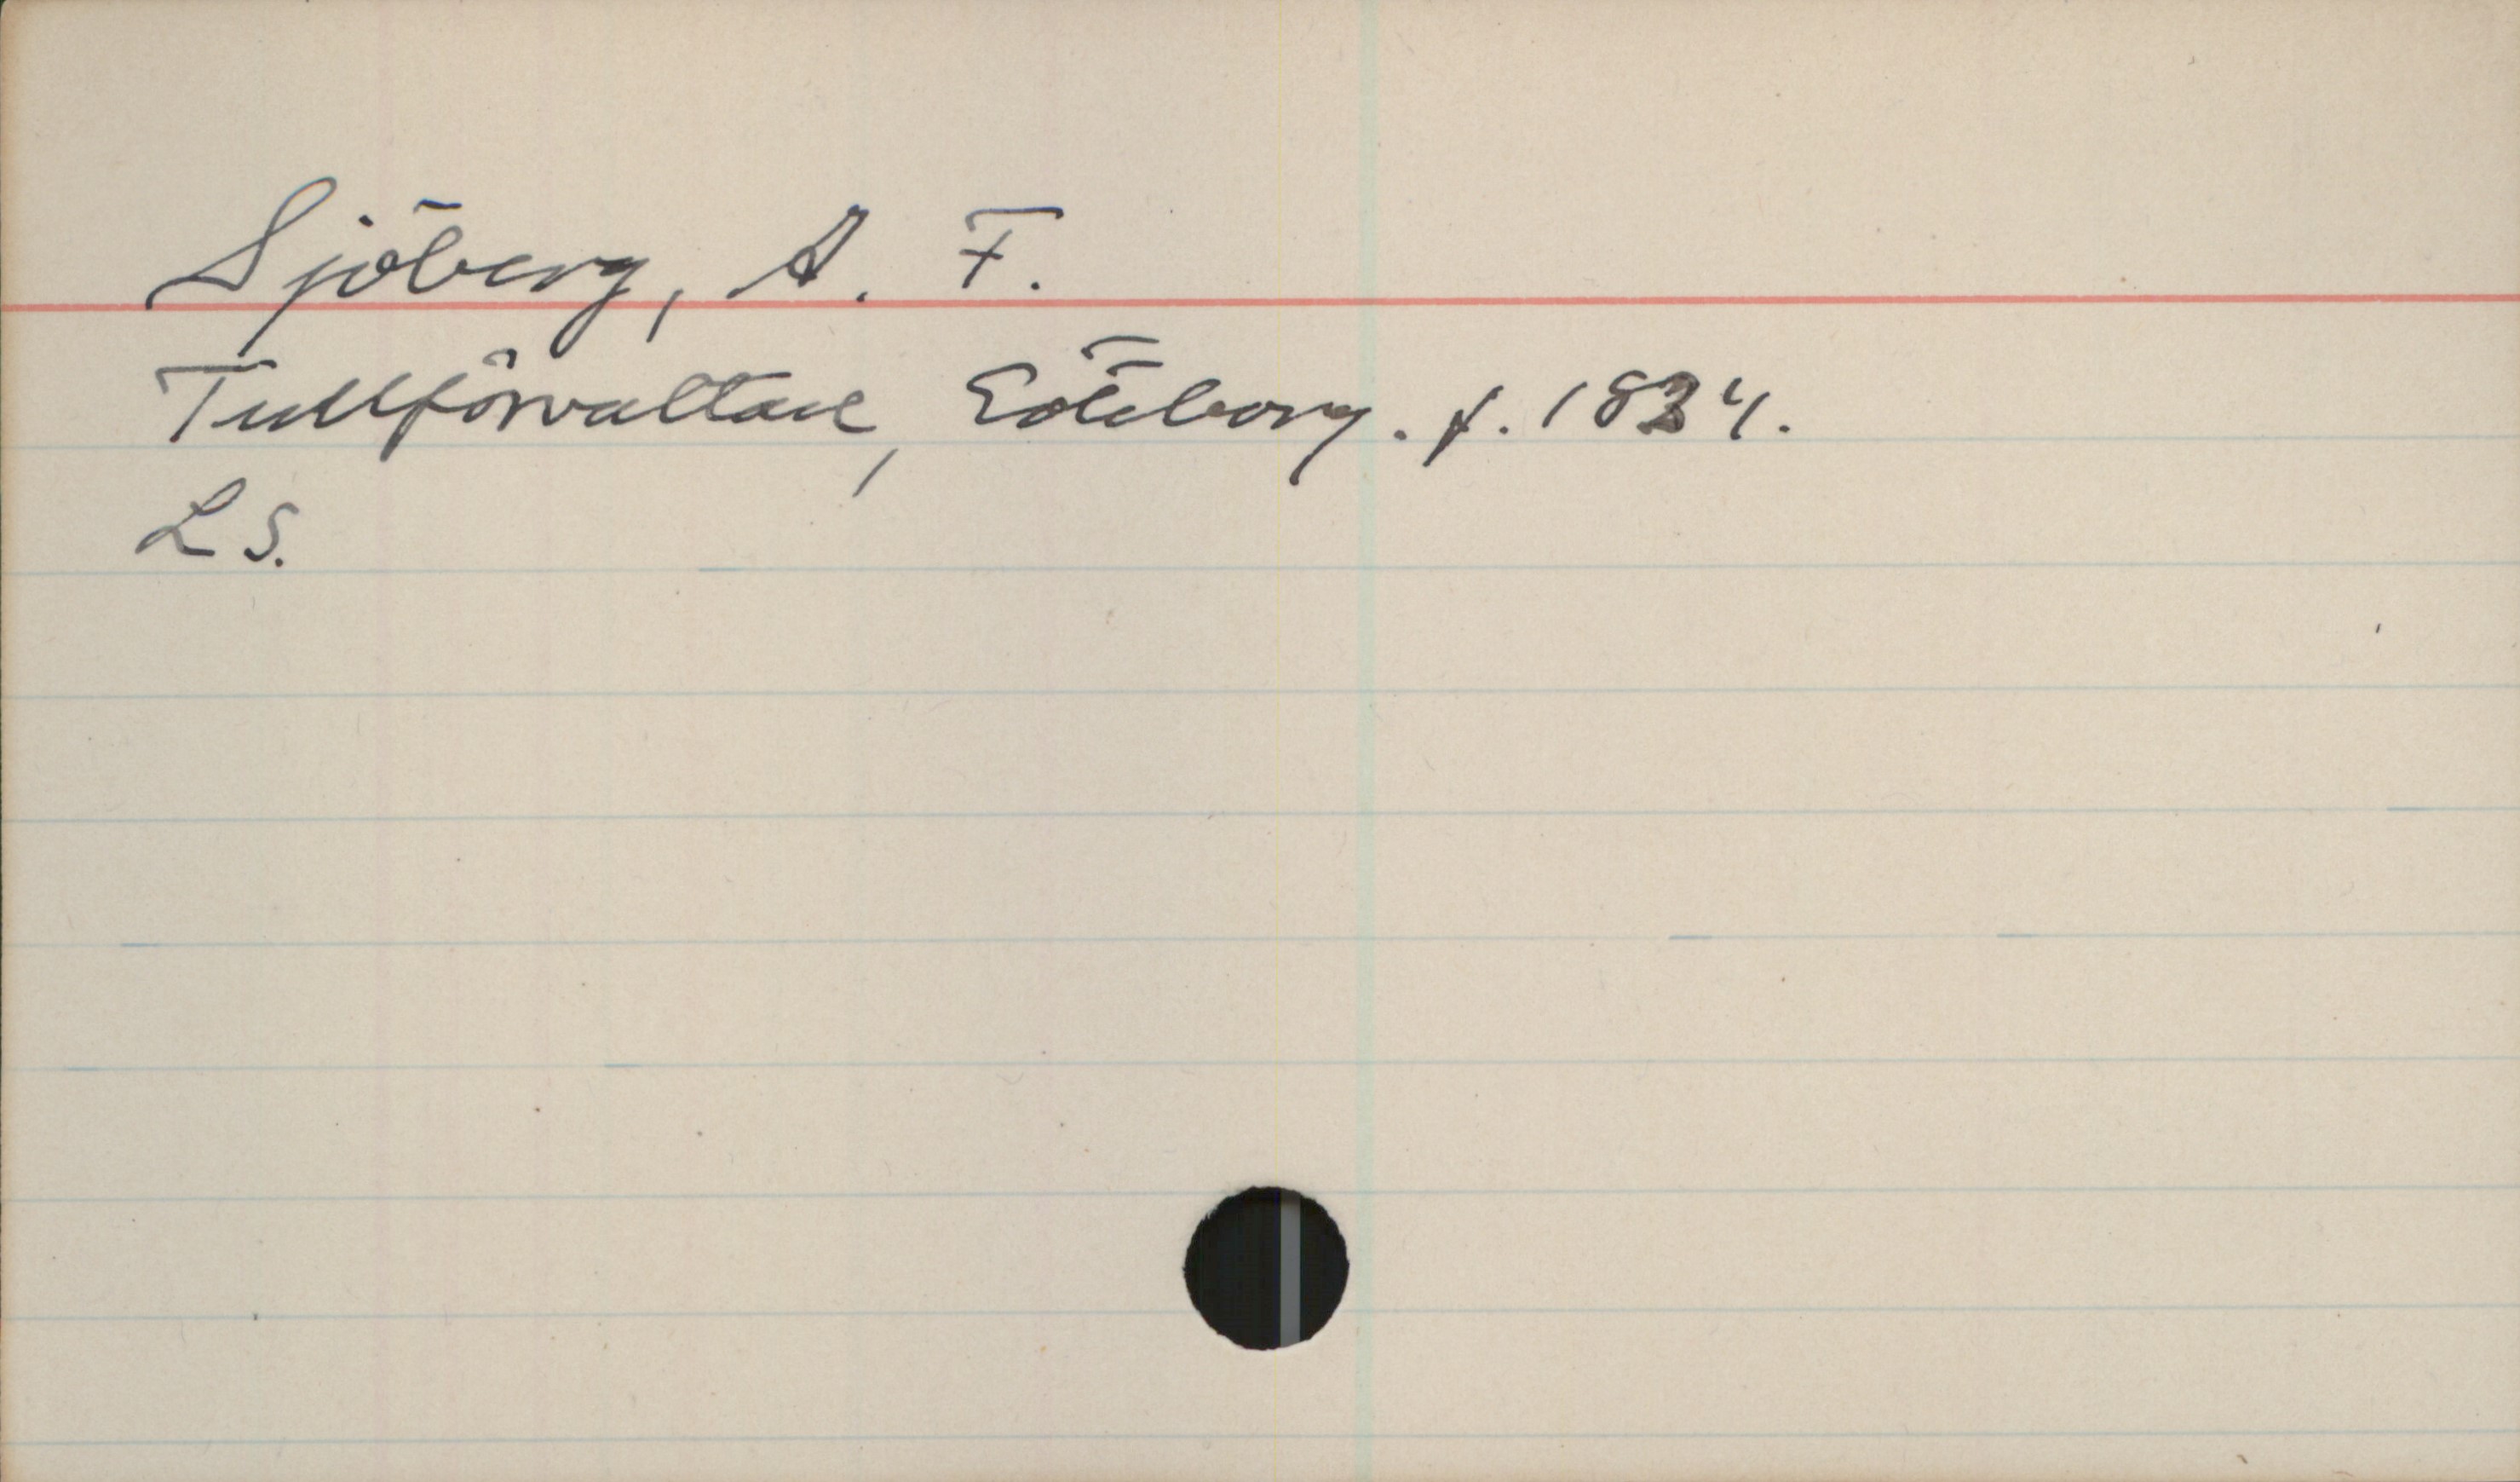 Sjöberg, A. F.
Tullförvaltare, Göteborg. f. 1834.
L S.